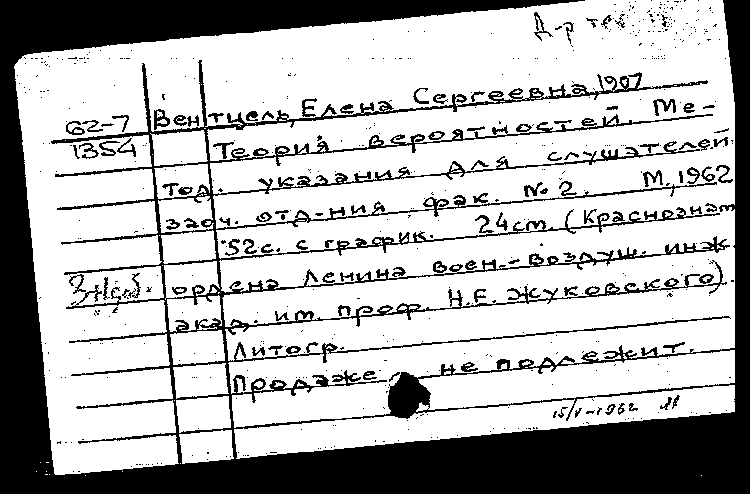 Д-р тех
62-7 Вентцель, Елена Сергеевна, 1907
1354 Теория вероятностей. Ме-
тод. указания для слушателей
заоч. отд-ния фак. №2. М., 1962
52с. с график. 24см. (Краснознам
ордена Ленина воен.-воздуш. инж.
акад. им. проф. Н.Е. Жуковского)
Литогр.
Продаже не подлежит.
15/V-1962